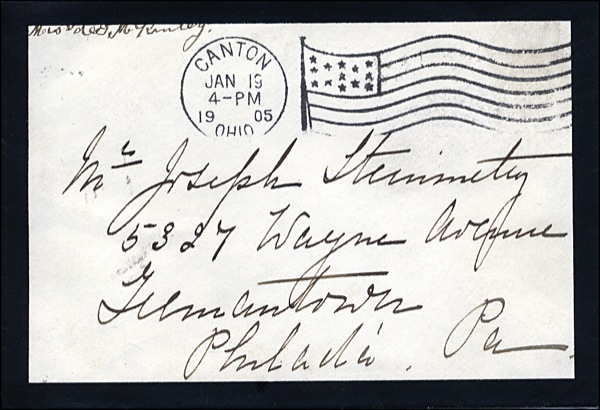 Mrs Ida S. McKinley.
CANTON
JAN 19
4-PM
19 05
OHIO
Mr Joseph Steinmetz
5327 Wayne Avenue
Germantown
Philada. Pa